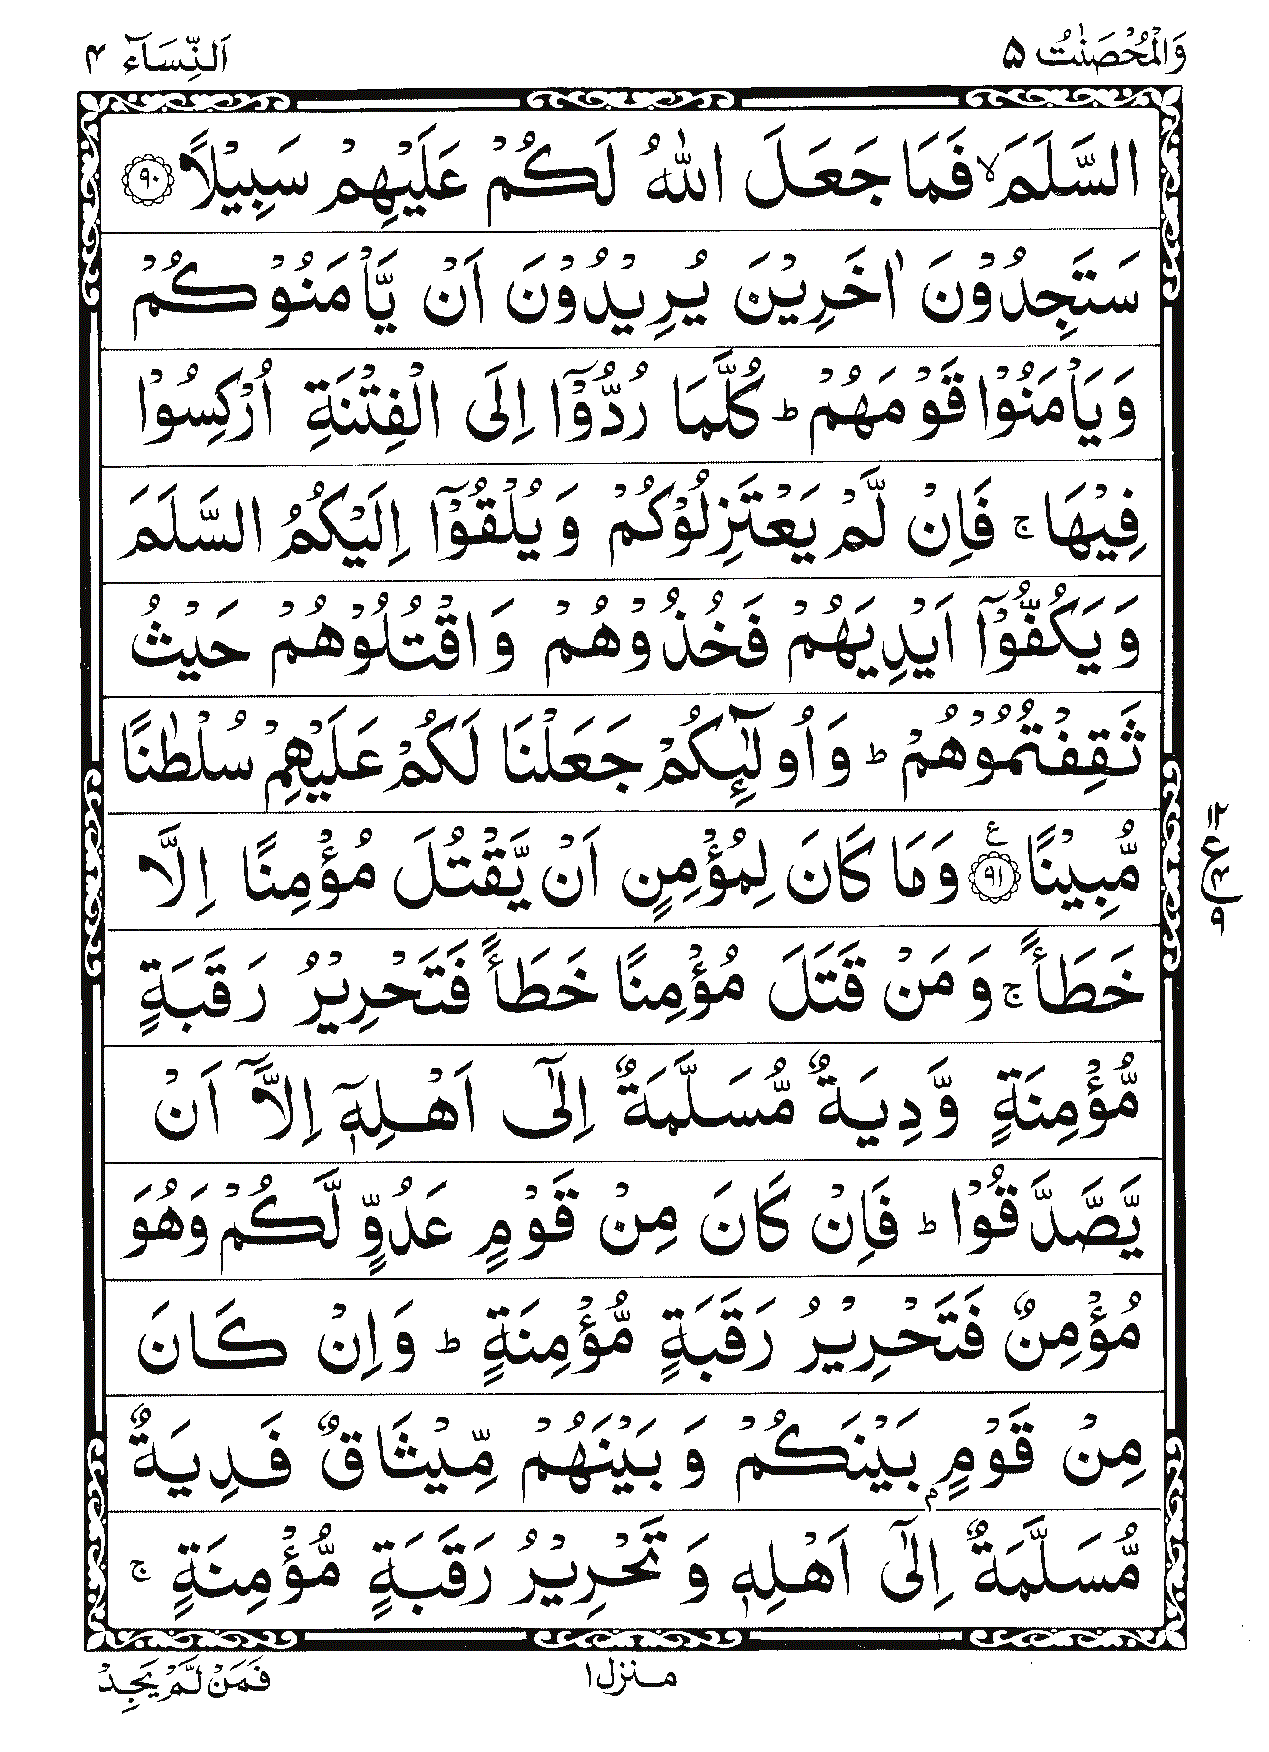 وَالْمُحْصَنٰتُ ۵ اَلنِّسَآء ۴
السَّلَمَ ۙ فَمَا جَعَلَ اللّٰهُ لَكُمْ عَلَيْهِمْ سَبِيْلًا ﴿۹۰﴾
سَتَجِدُوْنَ اٰخَرِيْنَ يُرِيْدُوْنَ اَنْ يَّاْمَنُوْكُمْ
وَيَاْمَنُوْا قَوْمَهُمْ ؕ كُلَّمَا رُدُّوْۤا اِلَى الْفِتْنَةِ اُرْكِسُوْا
فِيْهَا ۚ فَاِنْ لَّمْ يَعْتَزِلُوْكُمْ وَيُلْقُوْۤا اِلَيْكُمُ السَّلَمَ
وَيَكُفُّوْۤا اَيْدِيَهُمْ فَخُذُوْهُمْ وَاقْتُلُوْهُمْ حَيْثُ
ثَقِفْتُمُوْهُمْ ؕ وَاُولٰٓئِكُمْ جَعَلْنَا لَكُمْ عَلَيْهِمْ سُلْطٰنًا
مُّبِيْنًا ﴿۹۱﴾ ع وَمَا كَانَ لِمُؤْمِنٍ اَنْ يَّقْتُلَ مُؤْمِنًا اِلَّا
خَطَـًٔا ۚ وَمَنْ قَتَلَ مُؤْمِنًا خَطَـًٔا فَتَحْرِيْرُ رَقَبَةٍ
مُّؤْمِنَةٍ وَّدِيَةٌ مُّسَلَّمَةٌ اِلٰٓى اَهْلِهٖۤ اِلَّاۤ اَنْ
يَّصَّدَّقُوْا ؕ فَاِنْ كَانَ مِنْ قَوْمٍ عَدُوٍّ لَّكُمْ وَهُوَ
مُؤْمِنٌ فَتَحْرِيْرُ رَقَبَةٍ مُّؤْمِنَةٍ ؕ وَاِنْ كَانَ
مِنْ قَوْمٍۭ بَيْنَكُمْ وَبَيْنَهُمْ مِّيْثَاقٌ فَدِيَةٌ
مُّسَلَّمَةٌ اِلٰٓى اَهْلِهٖ وَتَحْرِيْرُ رَقَبَةٍ مُّؤْمِنَةٍ ۚ
۱۲
ع ۴
۹
منزل ۱
فَمَنْ لَّمْ يَجِدْ